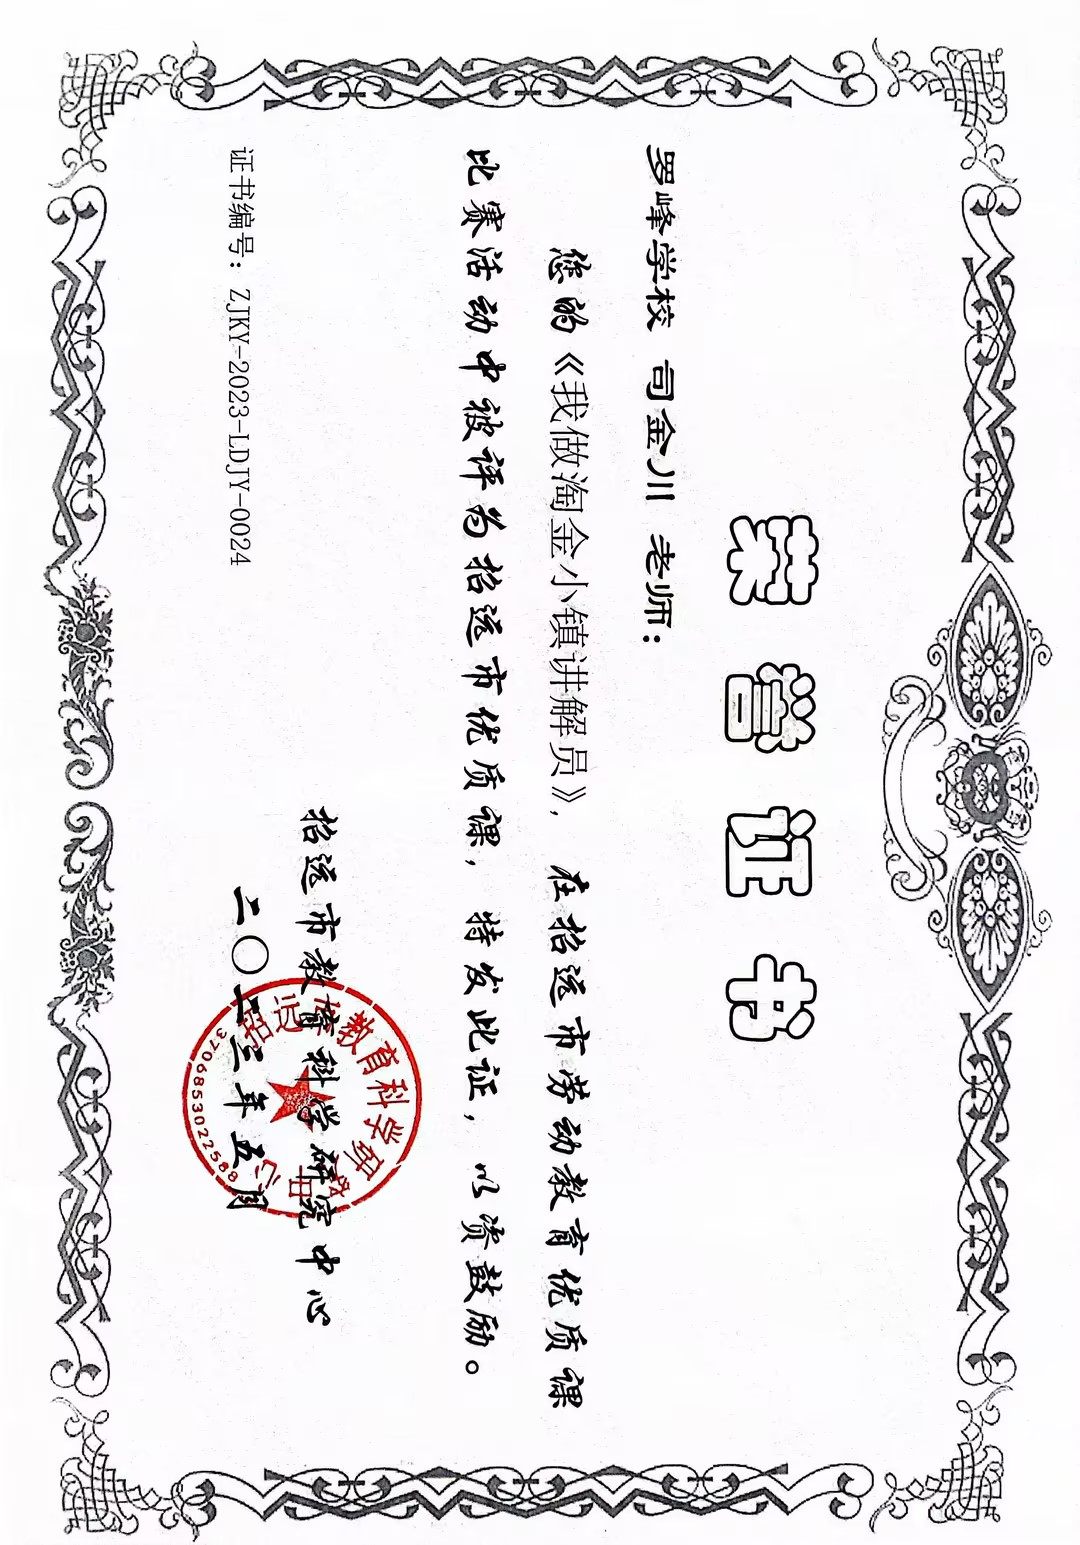 荣誉证书
罗峰学校 司金川 老师：
您的《我做淘金小镇讲解员》，在招远市劳动教育优质课
比赛活动中被评为招远市优质课，特发此证，以资鼓励。
招远市教育科学研究中心
证书编号：ZJKY-2023-LDJY-0024
二〇二三年五月
招远市教育科学研
3706853022588